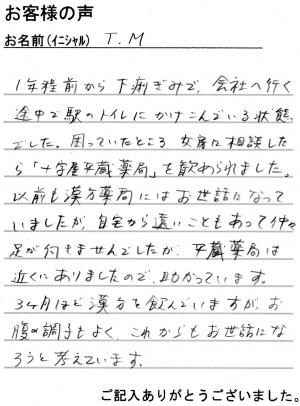 お客様の声
お名前(イニシャル) T.M
1年程前から下痢ぎみで、会社へ行く
途中で駅のトイレにかけこんでいる状態
でした。困っていたところ女房に相談した
ら「十字屋平蔵薬局」を勧められました。
以前も漢方薬局にはお世話になって
いましたが、自宅から遠いこともあって中々
足が向きませんでしたが、平蔵薬局は
近くにありましたので、助かっています。
3ヶ月ほど漢方を飲んでいますが、お
腹の調子もよく、これからもお世話にな
ろうと考えています。
ご記入ありがとうございました。